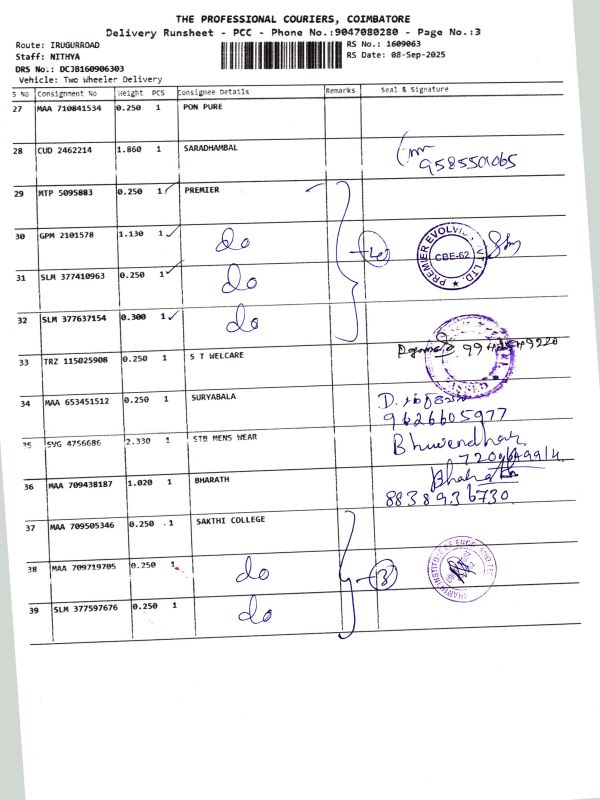 THE PROFESSIONAL COURIERS, COIMBATORE
Delivery Runsheet - PCC - Phone No.:9047080280 - Page No.:3
Route: IRUGURROAD RS No.: 1609063
Staff: NITHYA RS Date: 08-Sep-2025
DRS No.: DCJB160906303
Vehicle: Two Wheeler Delivery
S No Consignment No Weight PCS Consignee Details Remarks Seal & Signature
27 MAA 710841534 0.250 1 PON PURE
28 CUD 2462214 1.860 1 SARADHAMBAL
9585501065
29 MTP 5095883 0.250 1 PREMIER
30 GPM 2101578 1.130 1 do
PREMIER EVOLVICS PVT LTD. CBE-62
31 SLM 377410963 0.250 1 do
32 SLM 377637154 0.300 1 do
33 TRZ 115025908 0.250 1 S T WELCARE
34 MAA 653451512 0.250 1 SURYABALA
9626605977
35 SYG 4756686 2.330 1 STB MENS WEAR
Bhuvendhar
36 MAA 709438187 1.020 1 BHARATH
Bharath
8838936730
37 MAA 709505346 0.250 1 SAKTHI COLLEGE
38 MAA 709719705 0.250 1 do
3
39 SLM 377597676 0.250 1 do